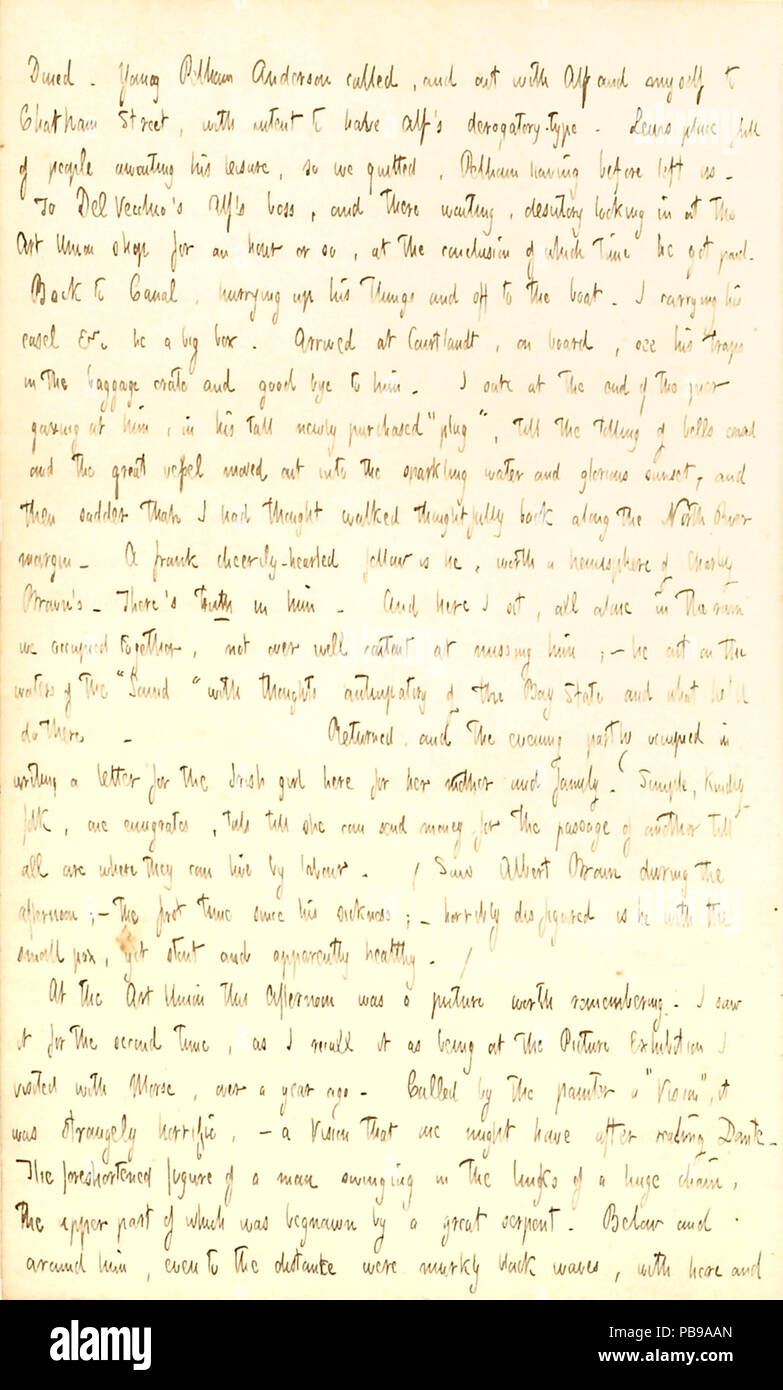 Dined. Young Pelham Anderson called, and out with Alf and myself to
Chatham Street, with intent to have Alf's derogatory-type. Lewis place full
of people awaiting his leisure, so we quitted, Pelham having before left us.
To Del Vecchio's Alf's boss, and there waiting, desultory looking in at the
Art Union shop for an hour or so, at the conclusion of which time he got paid.
Back to Canal, hurrying up his things and off to the boat. I carrying his
easel &c, he a big box. Arrived at Courtlandt, on board, see his "traps"
in the baggage crate and good bye to him. I sate at the end of the pier
gazing at him, in his tall newly purchased "plug", till the tolling of bells ceased
and the great vessel moved out into the sparkling water and glorious sunset, and
then sadder than I had thought walked thoughtfully back along the North River
margin. A frank cheerily-hearted fellow is he, worth a hemisphere of Charley
Brown's. There's truth in him. And here I sit, all alone in the room
we occupied together, not over well content at missing him; – he out on the
waters of the "Sound" with thoughts anticipatory of the Bay State and what he'll
do there. Returned, and the evening partly occupied in
writing a letter for the Irish girl here for her mother and family. (Simple, kindly
folk, one emigrates, toils till she can send money for the passage of another till
all are where they can live by labour. / Saw Albert Brown during the
afternoon; – the first time since his sickness; – horribly disfigured is he with the
small pox, yet stout and apparently healthy. /
At the Art Union this afternoon was a picture worth remembering. I saw
it for the second time, as I recall it as being at the Picture Exhibition I
visited with Morse, over a year ago. Called by the painter a "Vision", it
was strangely horrific, – a Vision that one might have after reading Dante.
The foreshortened figure of a man swinging in the links of a huge chain,
the upper part of which was begnawn by a great serpent. Below and
around him, even to the distance were murky black waves, with here and
alamy
Image ID: PB9AAN
www.alamy.com